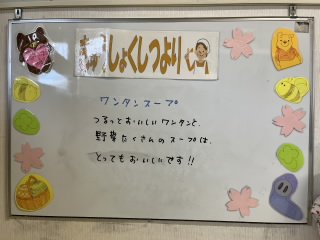 しょくしつより
ワンタンスープ
つるっとおいしいワンタンと、
野菜たくさんのスープは、
とってもおいしいです!!